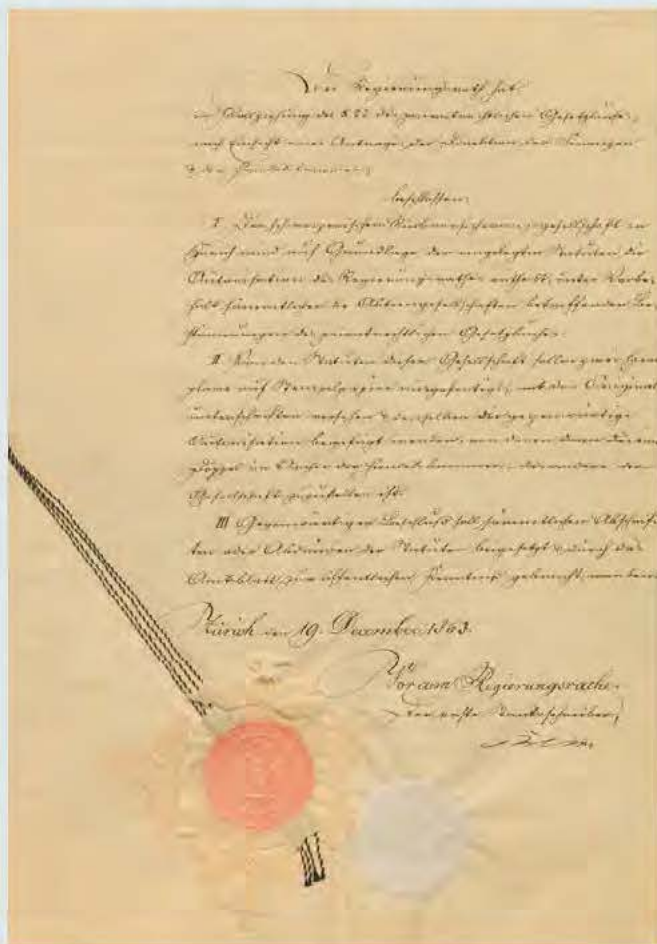 Der Regierungsrath hat
in Vollziehung des § 22 des privatrechtlichen Gesetzbuches,
nach Einsicht eines Antrages der Direktion der Finanzen
beschlossen:
I. Der schweizerischen Rückversicherungsgesellschaft in
Zürich wird auf Grundlage der vorgelegten Statuten die
Autorisation des Regierungsrathes ertheilt, unter Vorbe-
halt sämmtlicher die Aktiengesellschaften betreffenden Be-
stimmungen des privatrechtlichen Gesetzbuches.
II. Von den Statuten dieser Gesellschaft sollen zwei Exem-
plare auf Stempelpapier ausgefertigt, mit den Original-
unterschriften versehen & denselben die gegenwärtige
Autorisation beigefügt werden, von denen das eine
Doppel im Archiv der das andere der
Gesellschaft zuzustellen ist.
III. Gegenwärtiger Beschluß soll sämmtlichen Abschrif-
ten oder Abdrücken der Statuten beigesetzt & durch das
Amtsblatt zur öffentlichen Kenntniß gebracht werden.
Zürich den 19. December 1863.
Vor dem Regierungsrathe.
Der erste Staatsschreiber,